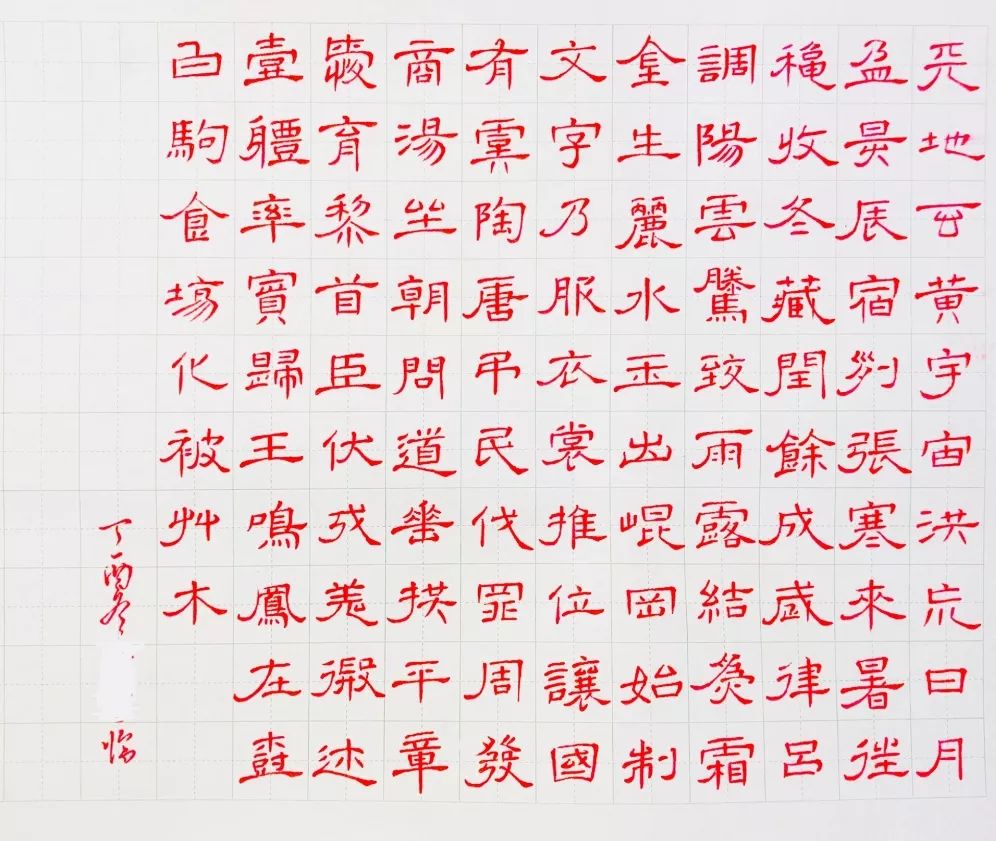 天地玄黃宇宙洪荒日月
盈昃辰宿列張寒來暑往
穐收冬藏閏餘成歲律呂
調陽雲騰致雨露結為霜
金生麗水玉出崐岡始制
文字乃服衣裳推位讓國
有虞陶唐弔民伐罪周發
商湯坐朝問道垂拱平章
愛育黎首臣伏戎羌遐迩
壹軆率賓歸王鳴鳳在樹
白駒食場化被艸木
丁酉冬 臨